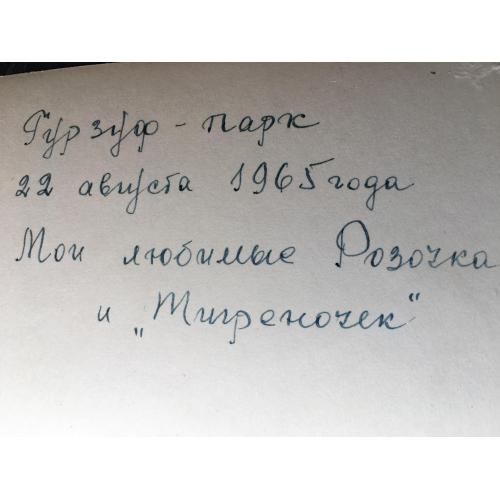 Гурзуф - парк
22 августа 1965 года
Мои любимые Розочка
и „Тигреночек"